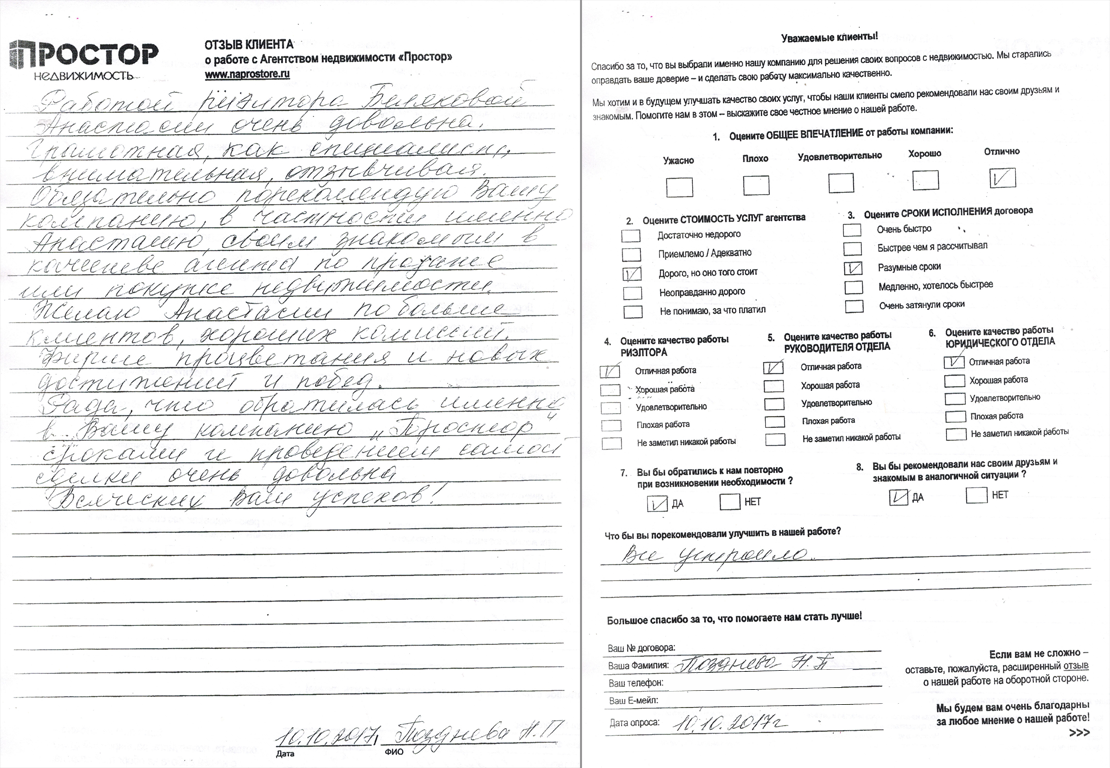 ПРОСТОР
НЕДВИЖИМОСТЬ
ОТЗЫВ КЛИЕНТА
о работе с Агентством недвижимости «Простор»
www.naprostore.ru
Работой риэлтора Беляковой
Анастасии очень довольна.
Грамотная, как специалист,
внимательная, отзывчивая.
Обязательно порекомендую Вашу
компанию, в частности именно
Анастасию, своим знакомым в
качестве агента по продаже
или покупке недвижимости.
Желаю Анастасии побольше
клиентов, хороших комиссий.
Фирме процветания и новых
достижений и побед.
Рада, что обратилась именно
в Вашу компанию „Простор“
Сроками и проведением самой
сделки очень довольна
Всяческих Вам успехов!
10.10.2017г Позднева Н.П
Дата ФИО
Уважаемые клиенты!
Спасибо за то, что вы выбрали именно нашу компанию для решения своих вопросов с недвижимостью. Мы старались
оправдать ваше доверие – и сделать свою работу максимально качественно.
Мы хотим и в будущем улучшать качество своих услуг, чтобы наши клиенты смело рекомендовали нас своим друзьям и
знакомым. Помогите нам в этом – выскажите свое честное мнение о нашей работе.
1. Оцените ОБЩЕЕ ВПЕЧАТЛЕНИЕ от работы компании:
Ужасно Плохо Удовлетворительно Хорошо Отлично
2. Оцените СТОИМОСТЬ УСЛУГ агентства
Достаточно недорого
Приемлемо / Адекватно
Дорого, но оно того стоит
Неоправданно дорого
Не понимаю, за что платил
3. Оцените СРОКИ ИСПОЛНЕНИЯ договора
Очень быстро
Быстрее чем я рассчитывал
Разумные сроки
Медленно, хотелось быстрее
Очень затянули сроки
4. Оцените качество работы
РИЭЛТОРА
Отличная работа
Хорошая работа
Удовлетворительно
Плохая работа
Не заметил никакой работы
5. Оцените качество работы
РУКОВОДИТЕЛЯ ОТДЕЛА
Отличная работа
Хорошая работа
Удовлетворительно
Плохая работа
Не заметил никакой работы
6. Оцените качество работы
ЮРИДИЧЕСКОГО ОТДЕЛА
Отличная работа
Хорошая работа
Удовлетворительно
Плохая работа
Не заметил никакой работы
7. Вы бы обратились к нам повторно
при возникновении необходимости ?
ДА НЕТ
8. Вы бы рекомендовали нас своим друзьям и
знакомым в аналогичной ситуации ?
ДА НЕТ
Что бы вы порекомендовали улучшить в нашей работе?
Все устроило.
Большое спасибо за то, что помогаете нам стать лучше!
Ваш № договора:
Ваша Фамилия: Позднева Н.П
Ваш телефон:
Ваш Е-мейл:
Дата опроса: 10.10.2017г
Если вам не сложно –
оставьте, пожалуйста, расширенный отзыв
о нашей работе на оборотной стороне.
Мы будем вам очень благодарны
за любое мнение о нашей работе!
>>>